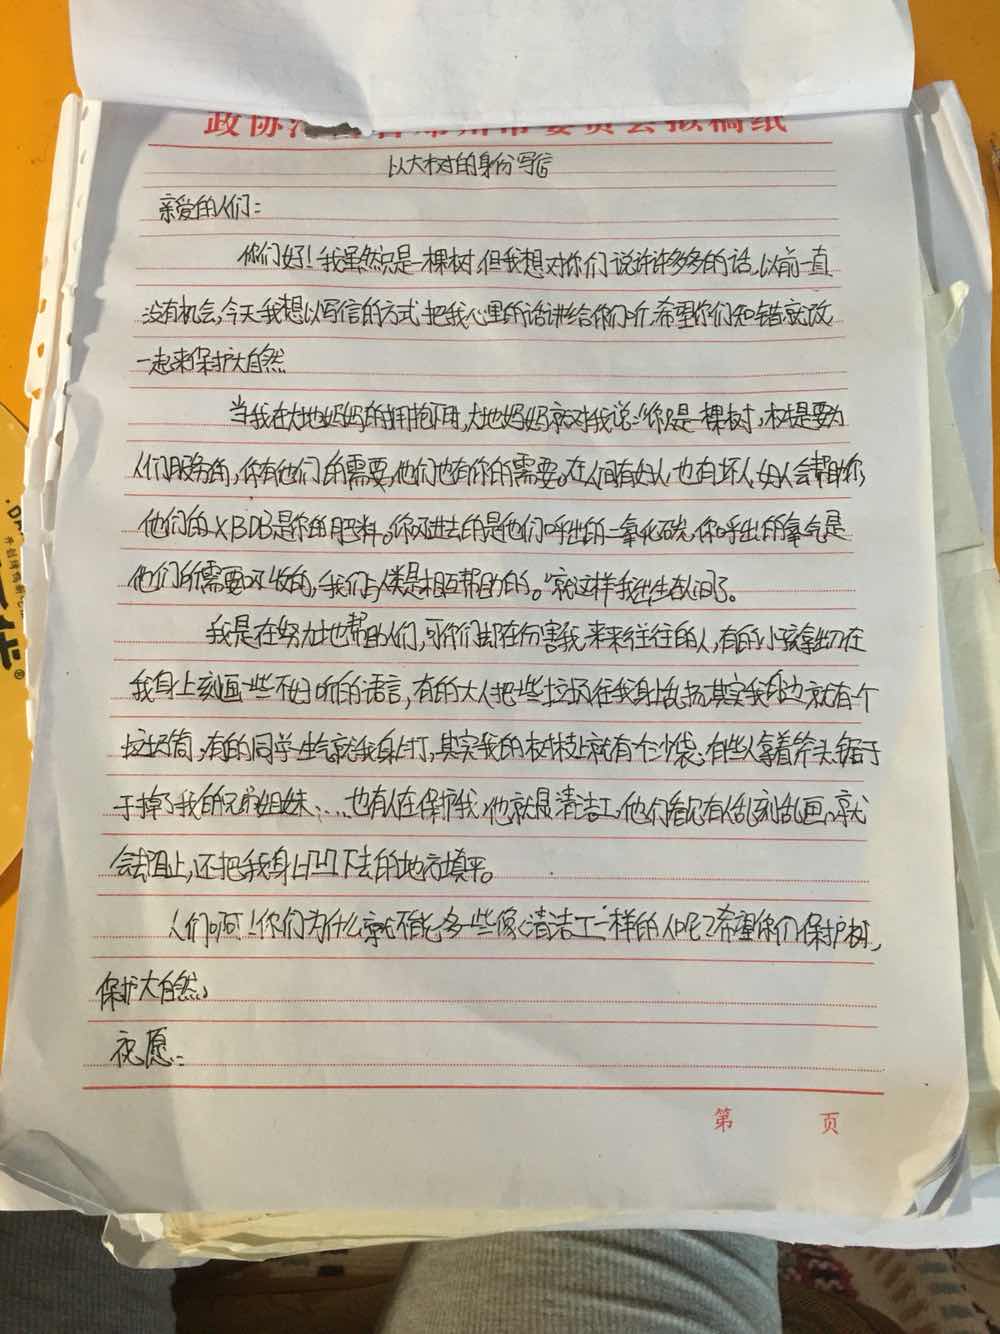 以大树的身份写信
亲爱的人们：
你们好！我虽然只是一棵树，但我想对你们说许许多多的话，以前一直
没有机会，今天我想以写信的方式把我心里的话讲给你们听，希望你们知错就改
一起来保护大自然
当我在大地妈妈的拥抱下时，大地妈妈就对我说：“你只是一棵树，树是要为
人们服务的，你有他们的需要，他们也有你的需要。在人间有好人，也有坏人，好人会帮助你，
他们的XBDB是你的肥料。你吸进去的是他们呼出的二氧化碳，你呼出的氧气是
他们所需要吸收的，我们与人类是相互帮助的。”就这样我出生在人间了。
我是在努力地帮助人们，可你们却在伤害我，来来往往的人，有的小孩拿出刀在
我身上刻画一些不好听的语言，有的大人把一些垃圾往我身上乱扔，其实我的边就有个
垃圾筒，有的同学生气就我身上打，其实我的树枝上就有个沙袋，有些人拿着斧头、锯子
干掉了我的兄弟姐妹……也有人在保护我，他就是清洁工，他们看见有人乱刻乱画，就
会去阻止，还把我身上凹下去的地方填平。
人们啊！你们为什么就不能多一些像“清洁工”一样的人呢？希望你们保护树，
保护大自然，
祝愿：
第 页